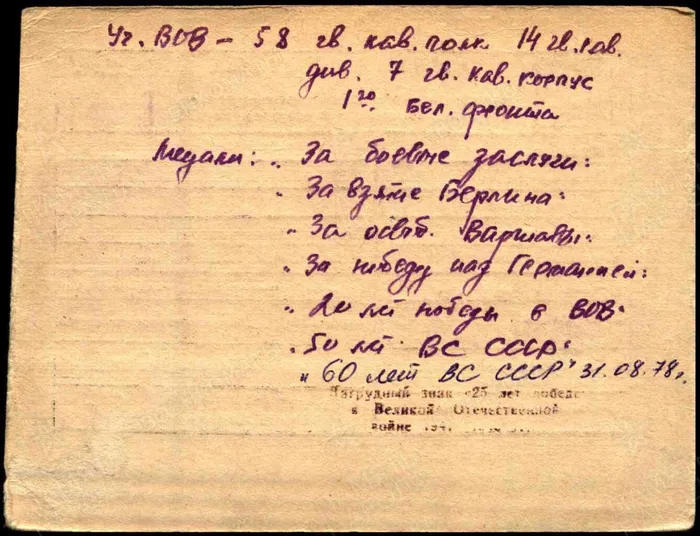 Уч. ВОВ – 58 гв. кав. полк 14 гв. кав.
див. 7 гв. кав. корпус
1го Бел. фронта
Медали: „За боевые заслуги"
„За взятие Берлина"
„За освоб. Варшавы"
„За победу над Германией"
„20 лет победы в ВОВ"
„50 лет ВС СССР"
„60 лет ВС СССР" 31.08.78г.
Нагрудный знак «25 лет победы
в Великой Отечественной
войне